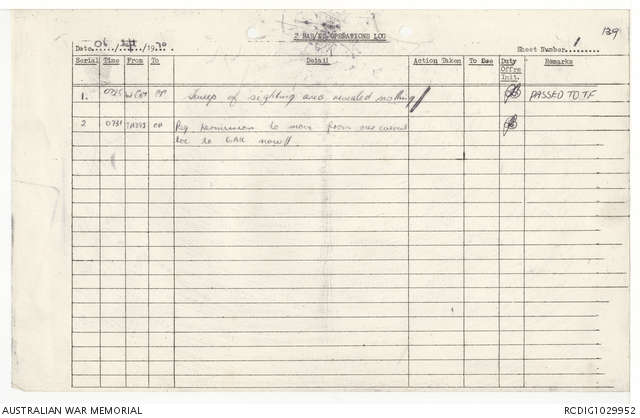 2 RAR/NZ OPERATIONS LOG
139
Date 06 / / 1970
Sheet Number 1
Serial Time From To Detail Action Taken To See Duty Offrs Init. Remarks
1. 0725 CP Sweep of sighting area revealed nothing// PASSED TO TF
2 0731 CP Req permission to move from our current
loc to now//
AUSTRALIAN WAR MEMORIAL
RCDIG1029952